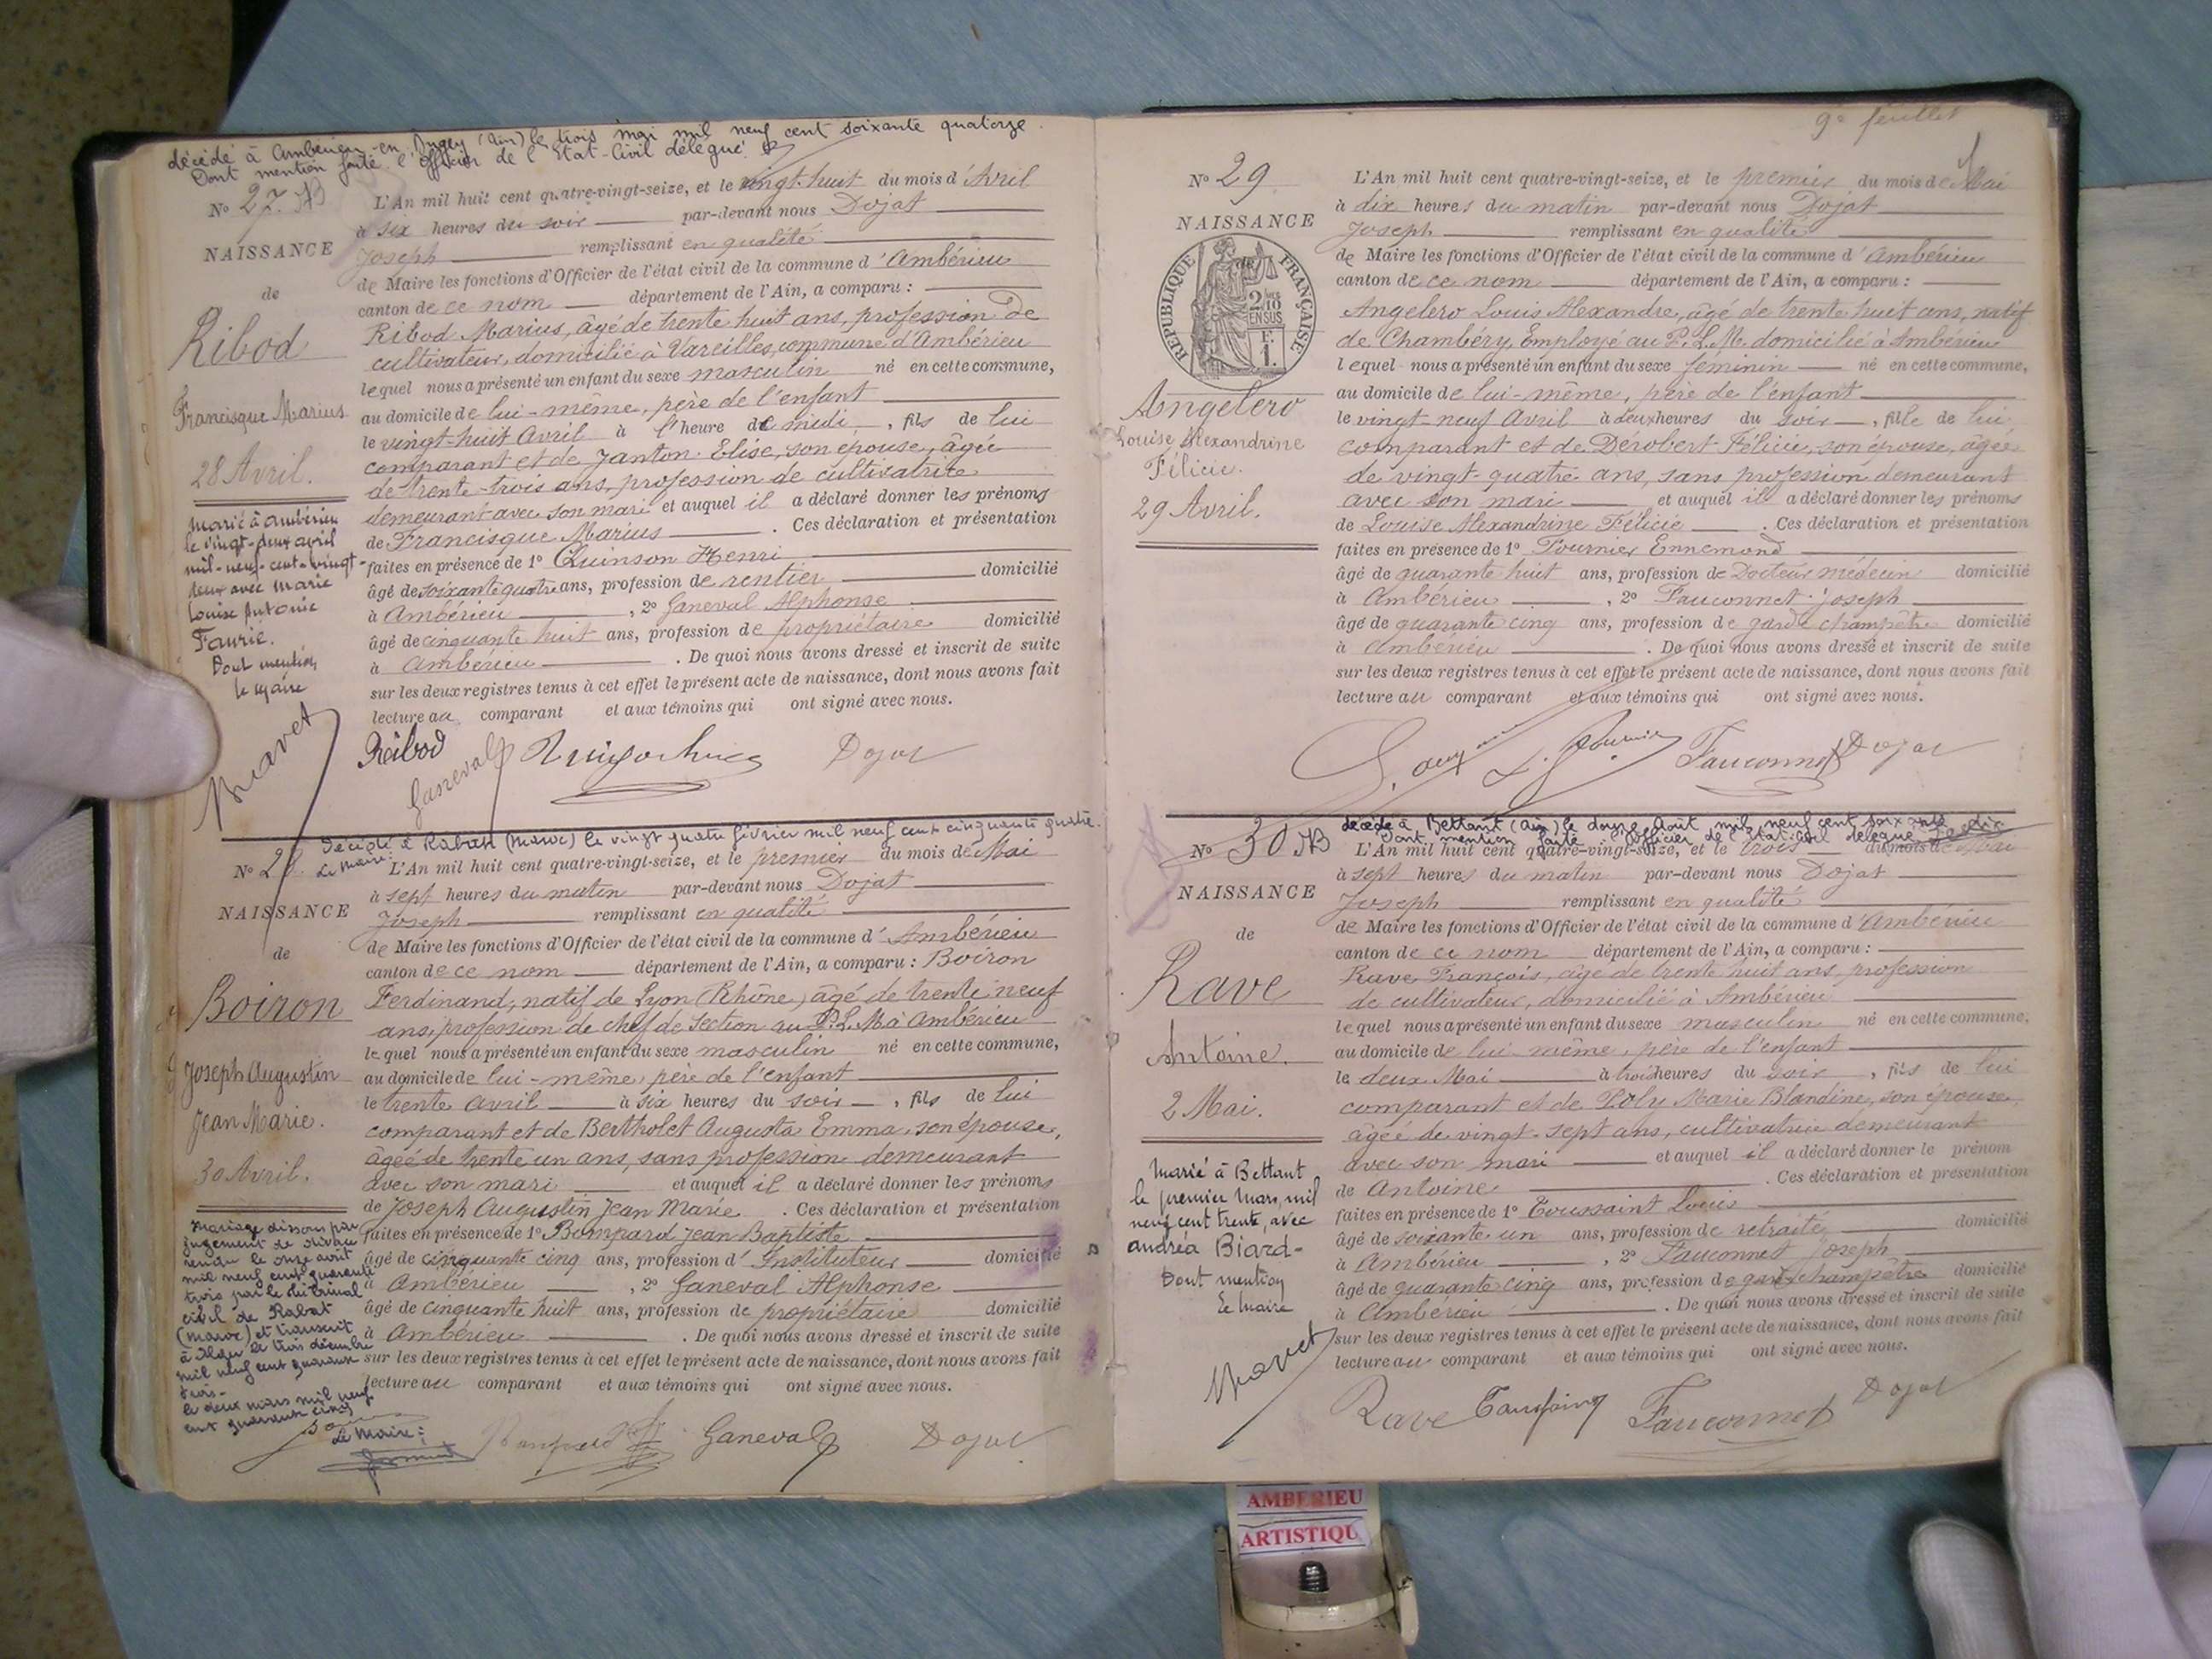 décédé à Ambérieu-en-Bugey (Ain) le trois mai mil neuf cent soixante quatorze.
Dont mention faite l'officier de l'Etat-Civil délégué.
No 27. B
NAISSANCE
de
Ribod
Francisque Marius
28 Avril.
Marié à Ambérieu
le vingt-deux avril
mil-neuf-cent-vingt-
deux avec Marie
Louise Antonie
Faurie.
Dont mention
le Maire
Mavet
L'An mil huit cent quatre-vingt-seize, et le vingt-huit du mois d'Avril
à six heures du soir par-devant nous Dojat
Joseph remplissant en qualité
de Maire les fonctions d'Officier de l'état civil de la commune d'Ambérieu
canton de ce nom département de l'Ain, a comparu :
Ribod Marius, âgé de trente huit ans, profession de
cultivateur, domicilié à Vareilles, commune d'Ambérieu
lequel nous a présenté un enfant du sexe masculin né en cette commune,
au domicile de lui-même, père de l'enfant
le vingt-huit Avril à l'heure de midi, fils de lui
comparant et de Janton Elise, son épouse, âgée
de trente-trois ans, profession de cultivatrice
demeurant avec son mari et auquel il a déclaré donner les prénoms
de Francisque Marius. Ces déclaration et présentation
faites en présence de 1o Quinson Henri
âgé de soixante quatre ans, profession de rentier domicilié
à Ambérieu, 2o Ganeval Alphonse
âgé de cinquante huit ans, profession de propriétaire domicilié
à Ambérieu. De quoi nous avons dressé et inscrit de suite
sur les deux registres tenus à cet effet le présent acte de naissance, dont nous avons fait
lecture au comparant et aux témoins qui ont signé avec nous.
Ribod Ganeval Dojat
décédé à Rabat (Maroc) le vingt quatre février mil neuf cent cinquante quatre.
Le Maire:
No 28.
NAISSANCE
de
Boiron
Joseph Augustin
Jean Marie.
30 Avril.
Mariage dissous par
jugement de divorce
rendu le onze août
mil neuf cent quarante
trois par le tribunal
civil de Rabat
(Maroc) et transcrit
à Alger le trois décembre
mil neuf cent quarante
trois.
le deux mars mil neuf
cent quarante cinq
Le Maire:
L'An mil huit cent quatre-vingt-seize, et le premier du mois de Mai
à sept heures du matin par-devant nous Dojat
Joseph remplissant en qualité
de Maire les fonctions d'Officier de l'état civil de la commune d'Ambérieu
canton de ce nom département de l'Ain, a comparu : Boiron
Ferdinand, natif de Lyon (Rhône) âgé de trente neuf
ans, profession de chef de section au P.L.M à Ambérieu
lequel nous a présenté un enfant du sexe masculin né en cette commune,
au domicile de lui-même, père de l'enfant
le trente Avril à six heures du soir, fils de lui
comparant et de Bertholet Augusta Emma, son épouse,
âgée de trente un ans, sans profession demeurant
avec son mari et auquel il a déclaré donner les prénoms
de Joseph Augustin Jean Marie. Ces déclaration et présentation
faites en présence de 1o Bompard Jean Baptiste
âgé de cinquante cinq ans, profession d'Instituteur domicilié
à Ambérieu, 2o Ganeval Alphonse
âgé de cinquante huit ans, profession de propriétaire domicilié
à Ambérieu. De quoi nous avons dressé et inscrit de suite
sur les deux registres tenus à cet effet le présent acte de naissance, dont nous avons fait
lecture au comparant et aux témoins qui ont signé avec nous.
Ganeval Dojat
9e feuillet
No 29
NAISSANCE
RÉPUBLIQUE FRANÇAISE
2/10 EN SUS
Angelero
Louise Alexandrine
Félicie.
29 Avril.
L'An mil huit cent quatre-vingt-seize, et le premier du mois de Mai
à dix heures du matin par-devant nous Dojat
Joseph remplissant en qualité
de Maire les fonctions d'Officier de l'état civil de la commune d'Ambérieu
canton de ce nom département de l'Ain, a comparu :
Angelero Louis Alexandre, âgé de trente huit ans, natif
de Chambéry, Employé au P.L.M. domicilié à Ambérieu
lequel nous a présenté un enfant du sexe féminin né en cette commune,
au domicile de lui-même, père de l'enfant
le vingt-neuf Avril à deux heures du soir, fille de lui
comparant et de Derobert Félicie, son épouse, âgée
de vingt-quatre ans, sans profession demeurant
avec son mari et auquel il a déclaré donner les prénoms
de Louise Alexandrine Félicie. Ces déclaration et présentation
faites en présence de 1o Fournier Ennemond
âgé de quarante huit ans, profession de Docteur médecin domicilié
à Ambérieu, 2o Fauconnet Joseph
âgé de quarante cinq ans, profession de garde champêtre domicilié
à Ambérieu. De quoi nous avons dressé et inscrit de suite
sur les deux registres tenus à cet effet le présent acte de naissance, dont nous avons fait
lecture au comparant et aux témoins qui ont signé avec nous.
Fauconnet Dojat
décédé à Bettant (Ain) le douze Août mil neuf cent soixante dix
Dont mention faite l'officier de l'Etat-civil délégué
No 30 B
NAISSANCE
de
Rave
Antoine.
2 Mai.
Marié à Bettant
le premier Mars mil
neuf cent trente, avec
Andréa Biard-
Dont mention
Le Maire
Mavet
L'An mil huit cent quatre-vingt-seize, et le trois du mois de Mai
à sept heures du matin par-devant nous Dojat
Joseph remplissant en qualité
de Maire les fonctions d'Officier de l'état civil de la commune d'Ambérieu
canton de ce nom département de l'Ain, a comparu :
Rave François, âgé de trente huit ans, profession
de cultivateur, domicilié à Ambérieu
lequel nous a présenté un enfant du sexe masculin né en cette commune,
au domicile de lui-même, père de l'enfant
le deux Mai à trois heures du soir, fils de lui
comparant et de Poly Marie Blandine, son épouse,
âgée de vingt-sept ans, cultivatrice demeurant
avec son mari et auquel il a déclaré donner le prénom
de Antoine. Ces déclaration et présentation
faites en présence de 1o Toussaint Louis
âgé de soixante un ans, profession de retraité domicilié
à Ambérieu, 2o Fauconnet Joseph
âgé de quarante cinq ans, profession de garde champêtre domicilié
à Ambérieu. De quoi nous avons dressé et inscrit de suite
sur les deux registres tenus à cet effet le présent acte de naissance, dont nous avons fait
lecture au comparant et aux témoins qui ont signé avec nous.
Rave Toussaint Fauconnet Dojat
AMBERIEU
ARTISTIQU